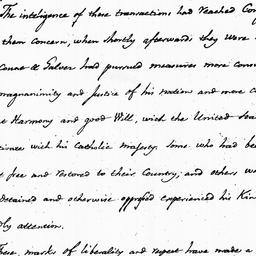 The inteligence of these transactions had reached Con
them concern, when shortly afterwards they were
Count de Galvez had pursued measures more conso
magnanimity and justice of his nation and more c
of Harmony and good Will, which the United Sta
tivate with his catholic majesty. Some who had be
t free and restored to their Country; and others w
detained and otherwise oppressed experienced his Kin
dly attention.
These marks of liberality and respect have made a